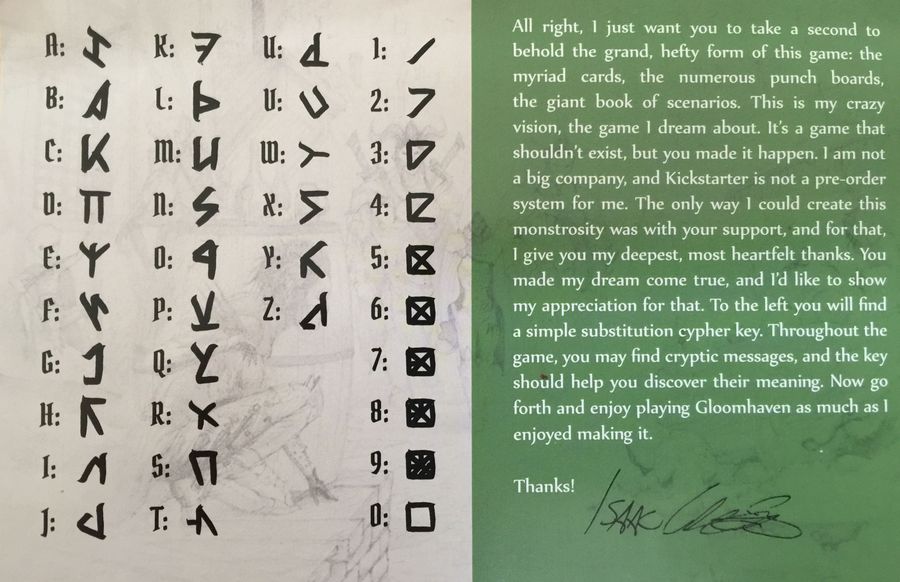 A:
B:
C:
D:
E:
F:
G:
H:
I:
J:
K:
L:
M:
N:
O:
P:
Q:
R:
S:
T:
U:
V:
W:
X:
Y:
Z:
1:
2:
3:
4:
5:
6:
7:
8:
9:
0:
All right, I just want you to take a second to
behold the grand, hefty form of this game: the
myriad cards, the numerous punch boards,
the giant book of scenarios. This is my crazy
vision, the game I dream about. It's a game that
shouldn't exist, but you made it happen. I am not
a big company, and Kickstarter is not a pre-order
system for me. The only way I could create this
monstrosity was with your support, and for that,
I give you my deepest, most heartfelt thanks. You
made my dream come true, and I'd like to show
my appreciation for that. To the left you will find
a simple substitution cypher key. Throughout the
game, you may find cryptic messages, and the key
should help you discover their meaning. Now go
forth and enjoy playing Gloomhaven as much as I
enjoyed making it.
Thanks!
Isaac